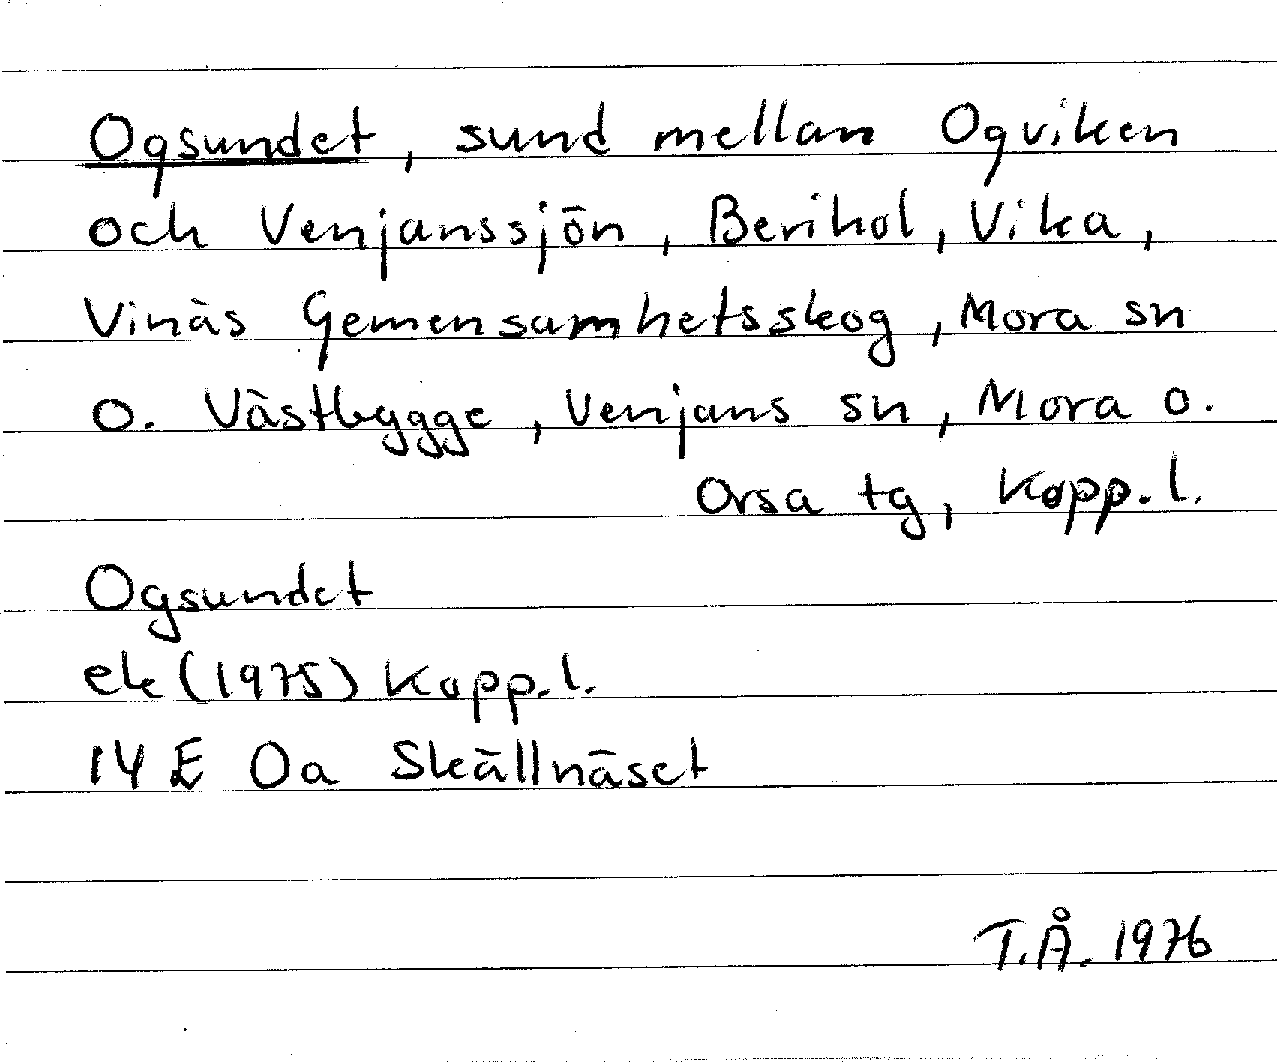 Ogsundet, sund mellan Ogviken
och Venjanssjön, Berihol, Vika,
Vinäs Gemensamhetsskog, Mora sn
o. Västbygge, Venjans sn, Mora o.
Orsa tg, Kopp. l.
Ogsundet
ek (1975) Kopp. l.
14 E 0a Skällnäset
T.Å. 1976